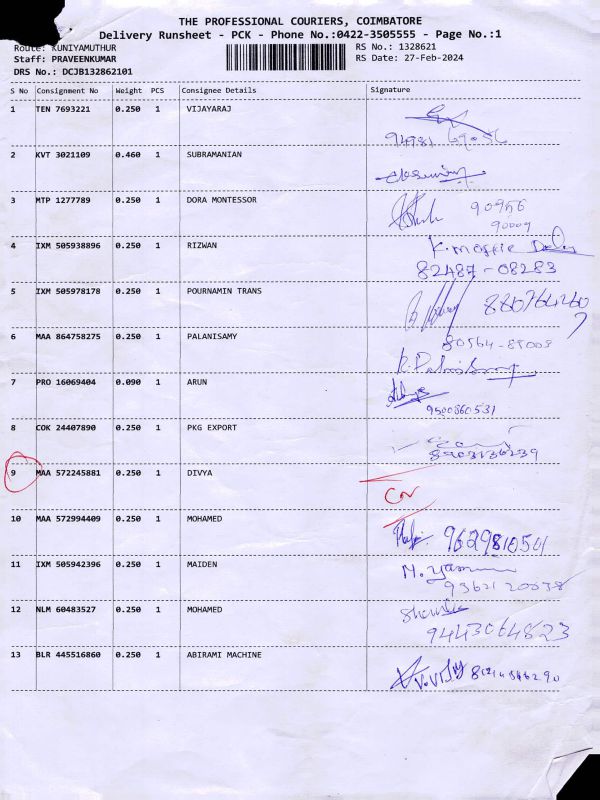 THE PROFESSIONAL COURIERS, COIMBATORE
Delivery Runsheet - PCK - Phone No.:0422-3505555 - Page No.:1
Route: KUNIYAMUTHUR RS No.: 1328621
Staff: PRAVEENKUMAR RS Date: 27-Feb-2024
DRS No.: DCJB132862101
S No Consignment No Weight PCS Consignee Details Signature
1 TEN 7693221 0.250 1 VIJAYARAJ
2 KVT 3021109 0.460 1 SUBRAMANIAN
3 MTP 1277789 0.250 1 DORA MONTESSOR
90009
4 IXM 505938896 0.250 1 RIZWAN
82487-08283
5 IXM 505978178 0.250 1 POURNAMIN TRANS
6 MAA 864758275 0.250 1 PALANISAMY
7 PRO 16069404 0.090 1 ARUN
9500860531
8 COK 24407890 0.250 1 PKG EXPORT
9 MAA 572245881 0.250 1 DIVYA
10 MAA 572994409 0.250 1 MOHAMED
9629810501
11 IXM 505942396 0.250 1 MAIDEN
12 NLM 60483527 0.250 1 MOHAMED
9443064823
13 BLR 445516860 0.250 1 ABIRAMI MACHINE